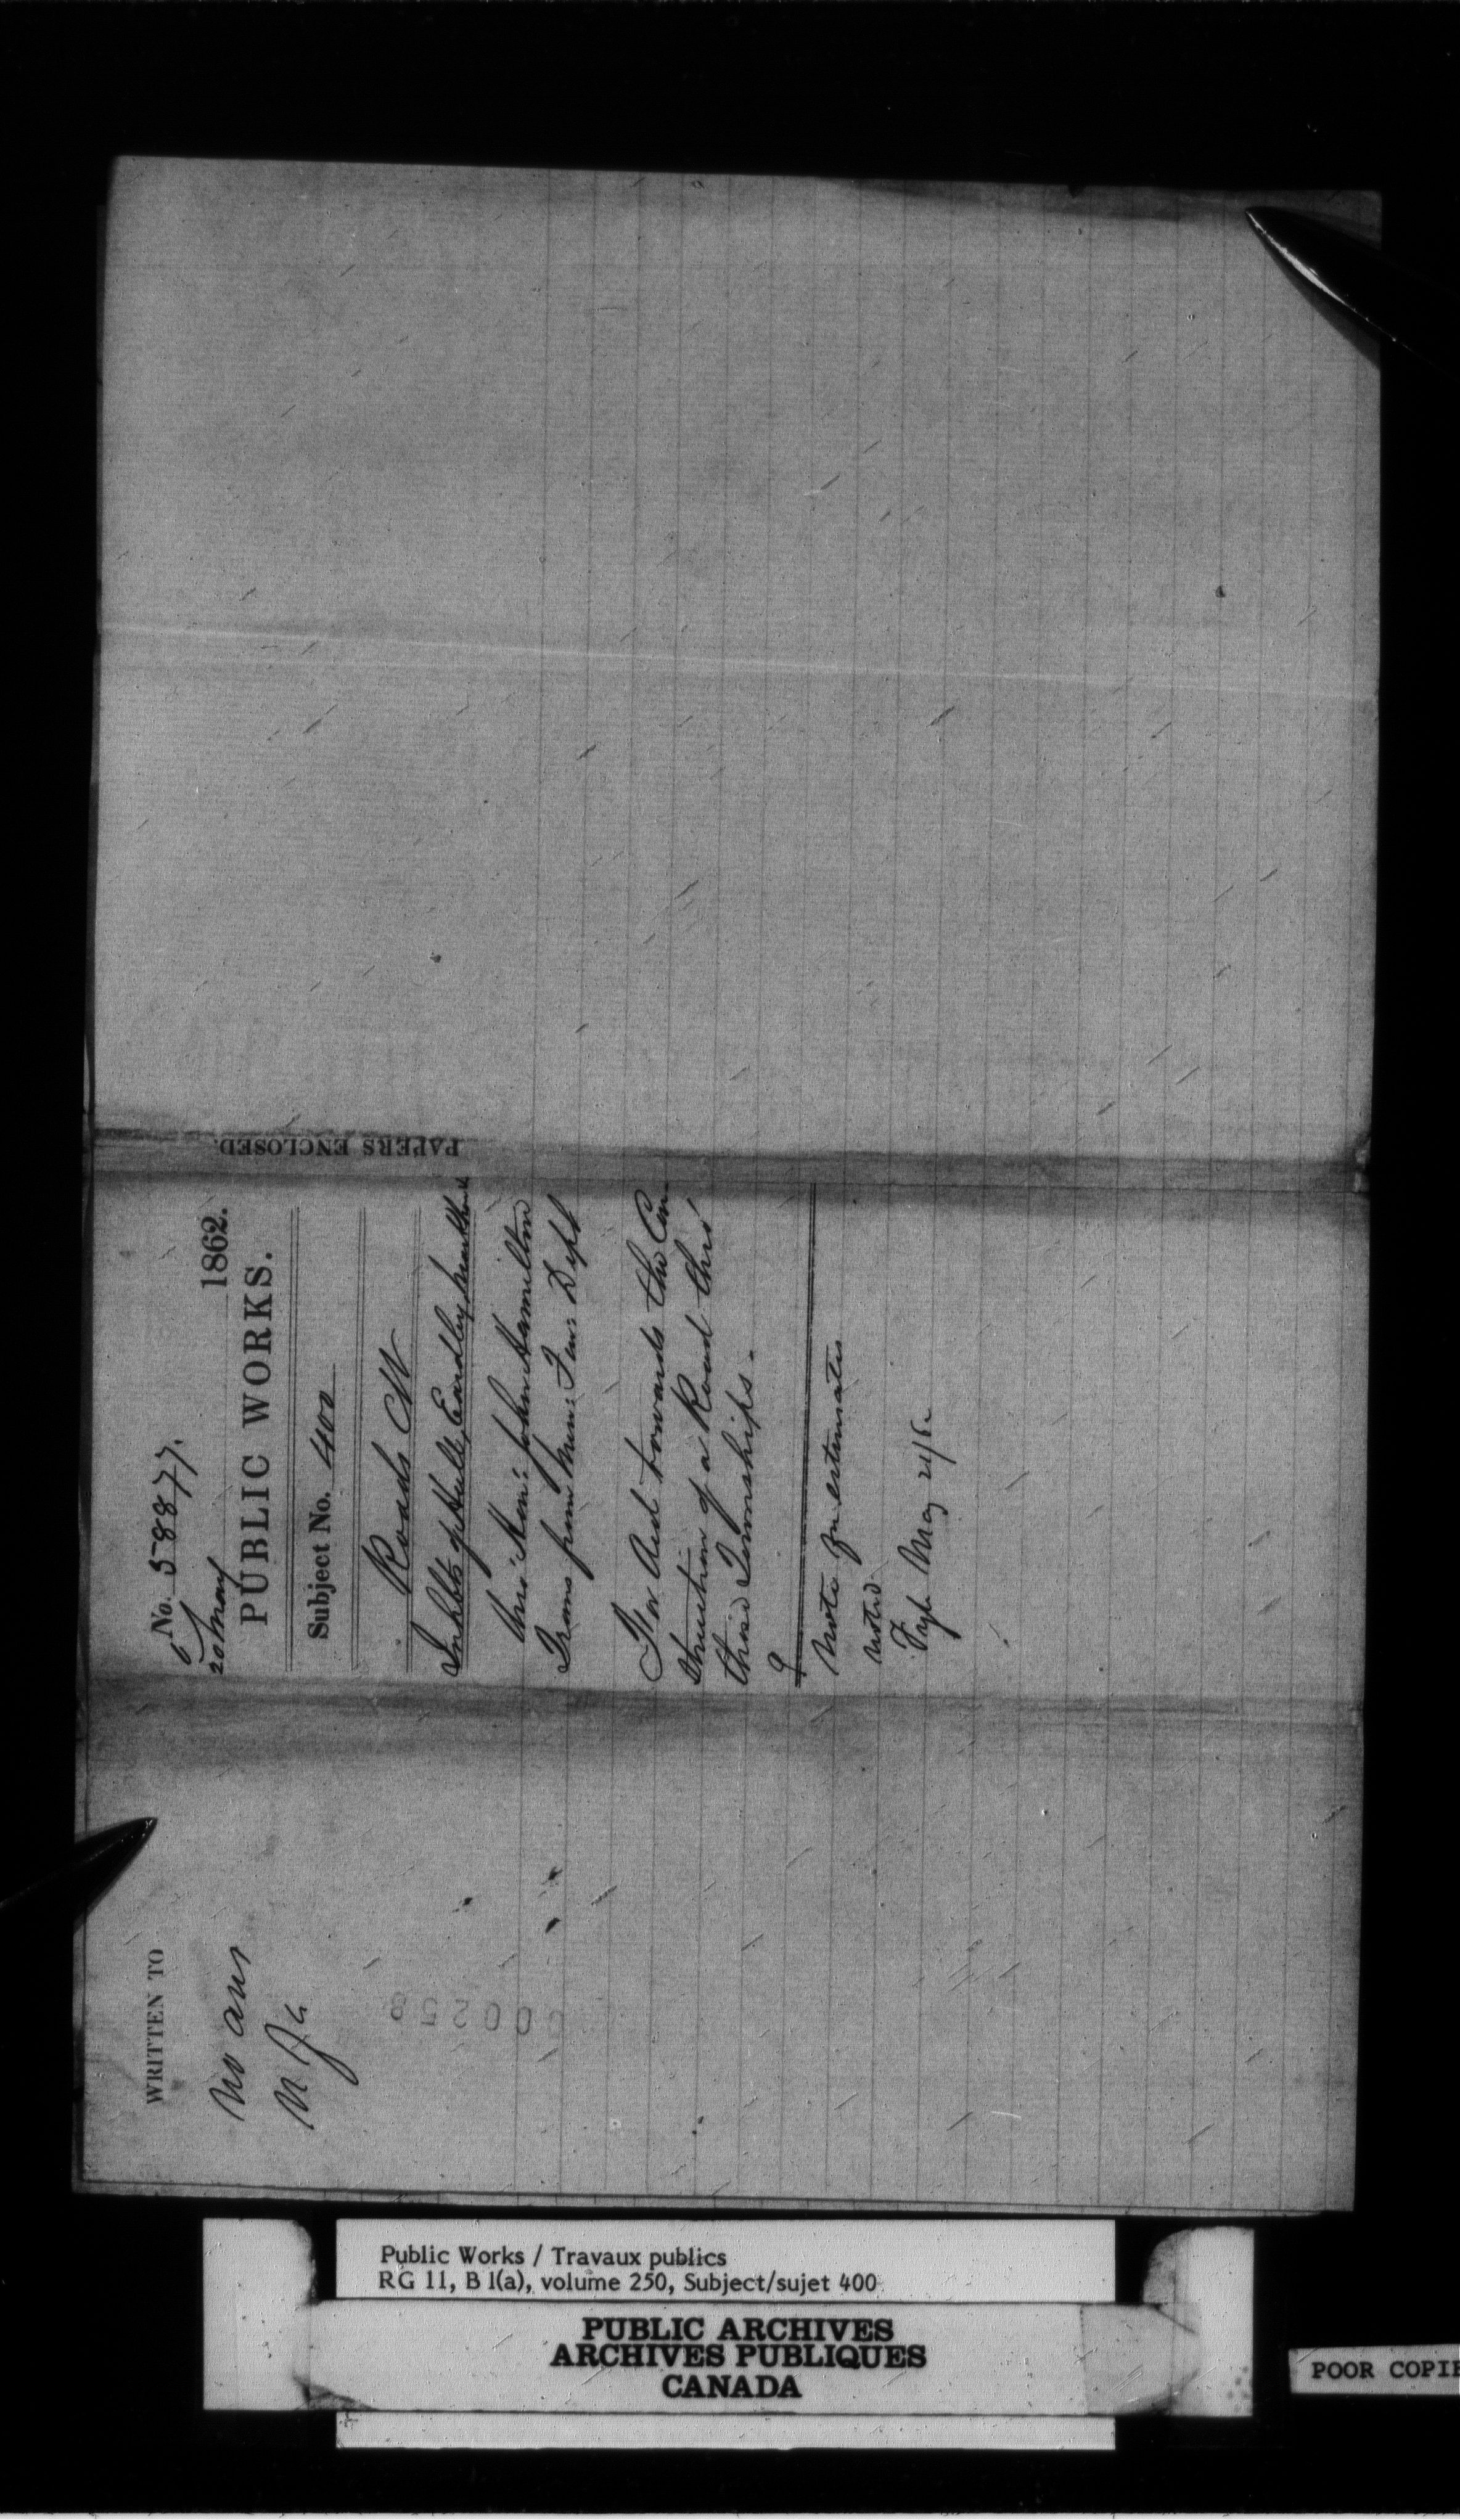 WRITTEN TO
no ans
000258
No. 58877.
20 May 1862.
PUBLIC WORKS.
Subject No. 400
Roads CW
Inhbts of Hull, Eardley
thro' Hon: John Hamilton
Trans from Min: Fin: Dept
For Aid towards the Con
struction of a Road thro'
these Townships.
Note for estimates
noted
May 21/62
PAPERS ENCLOSED.
Public Works / Travaux publics
RG 11, B 1(a), volume 250, Subject/sujet 400
PUBLIC ARCHIVES
ARCHIVES PUBLIQUES
CANADA
POOR COPIE